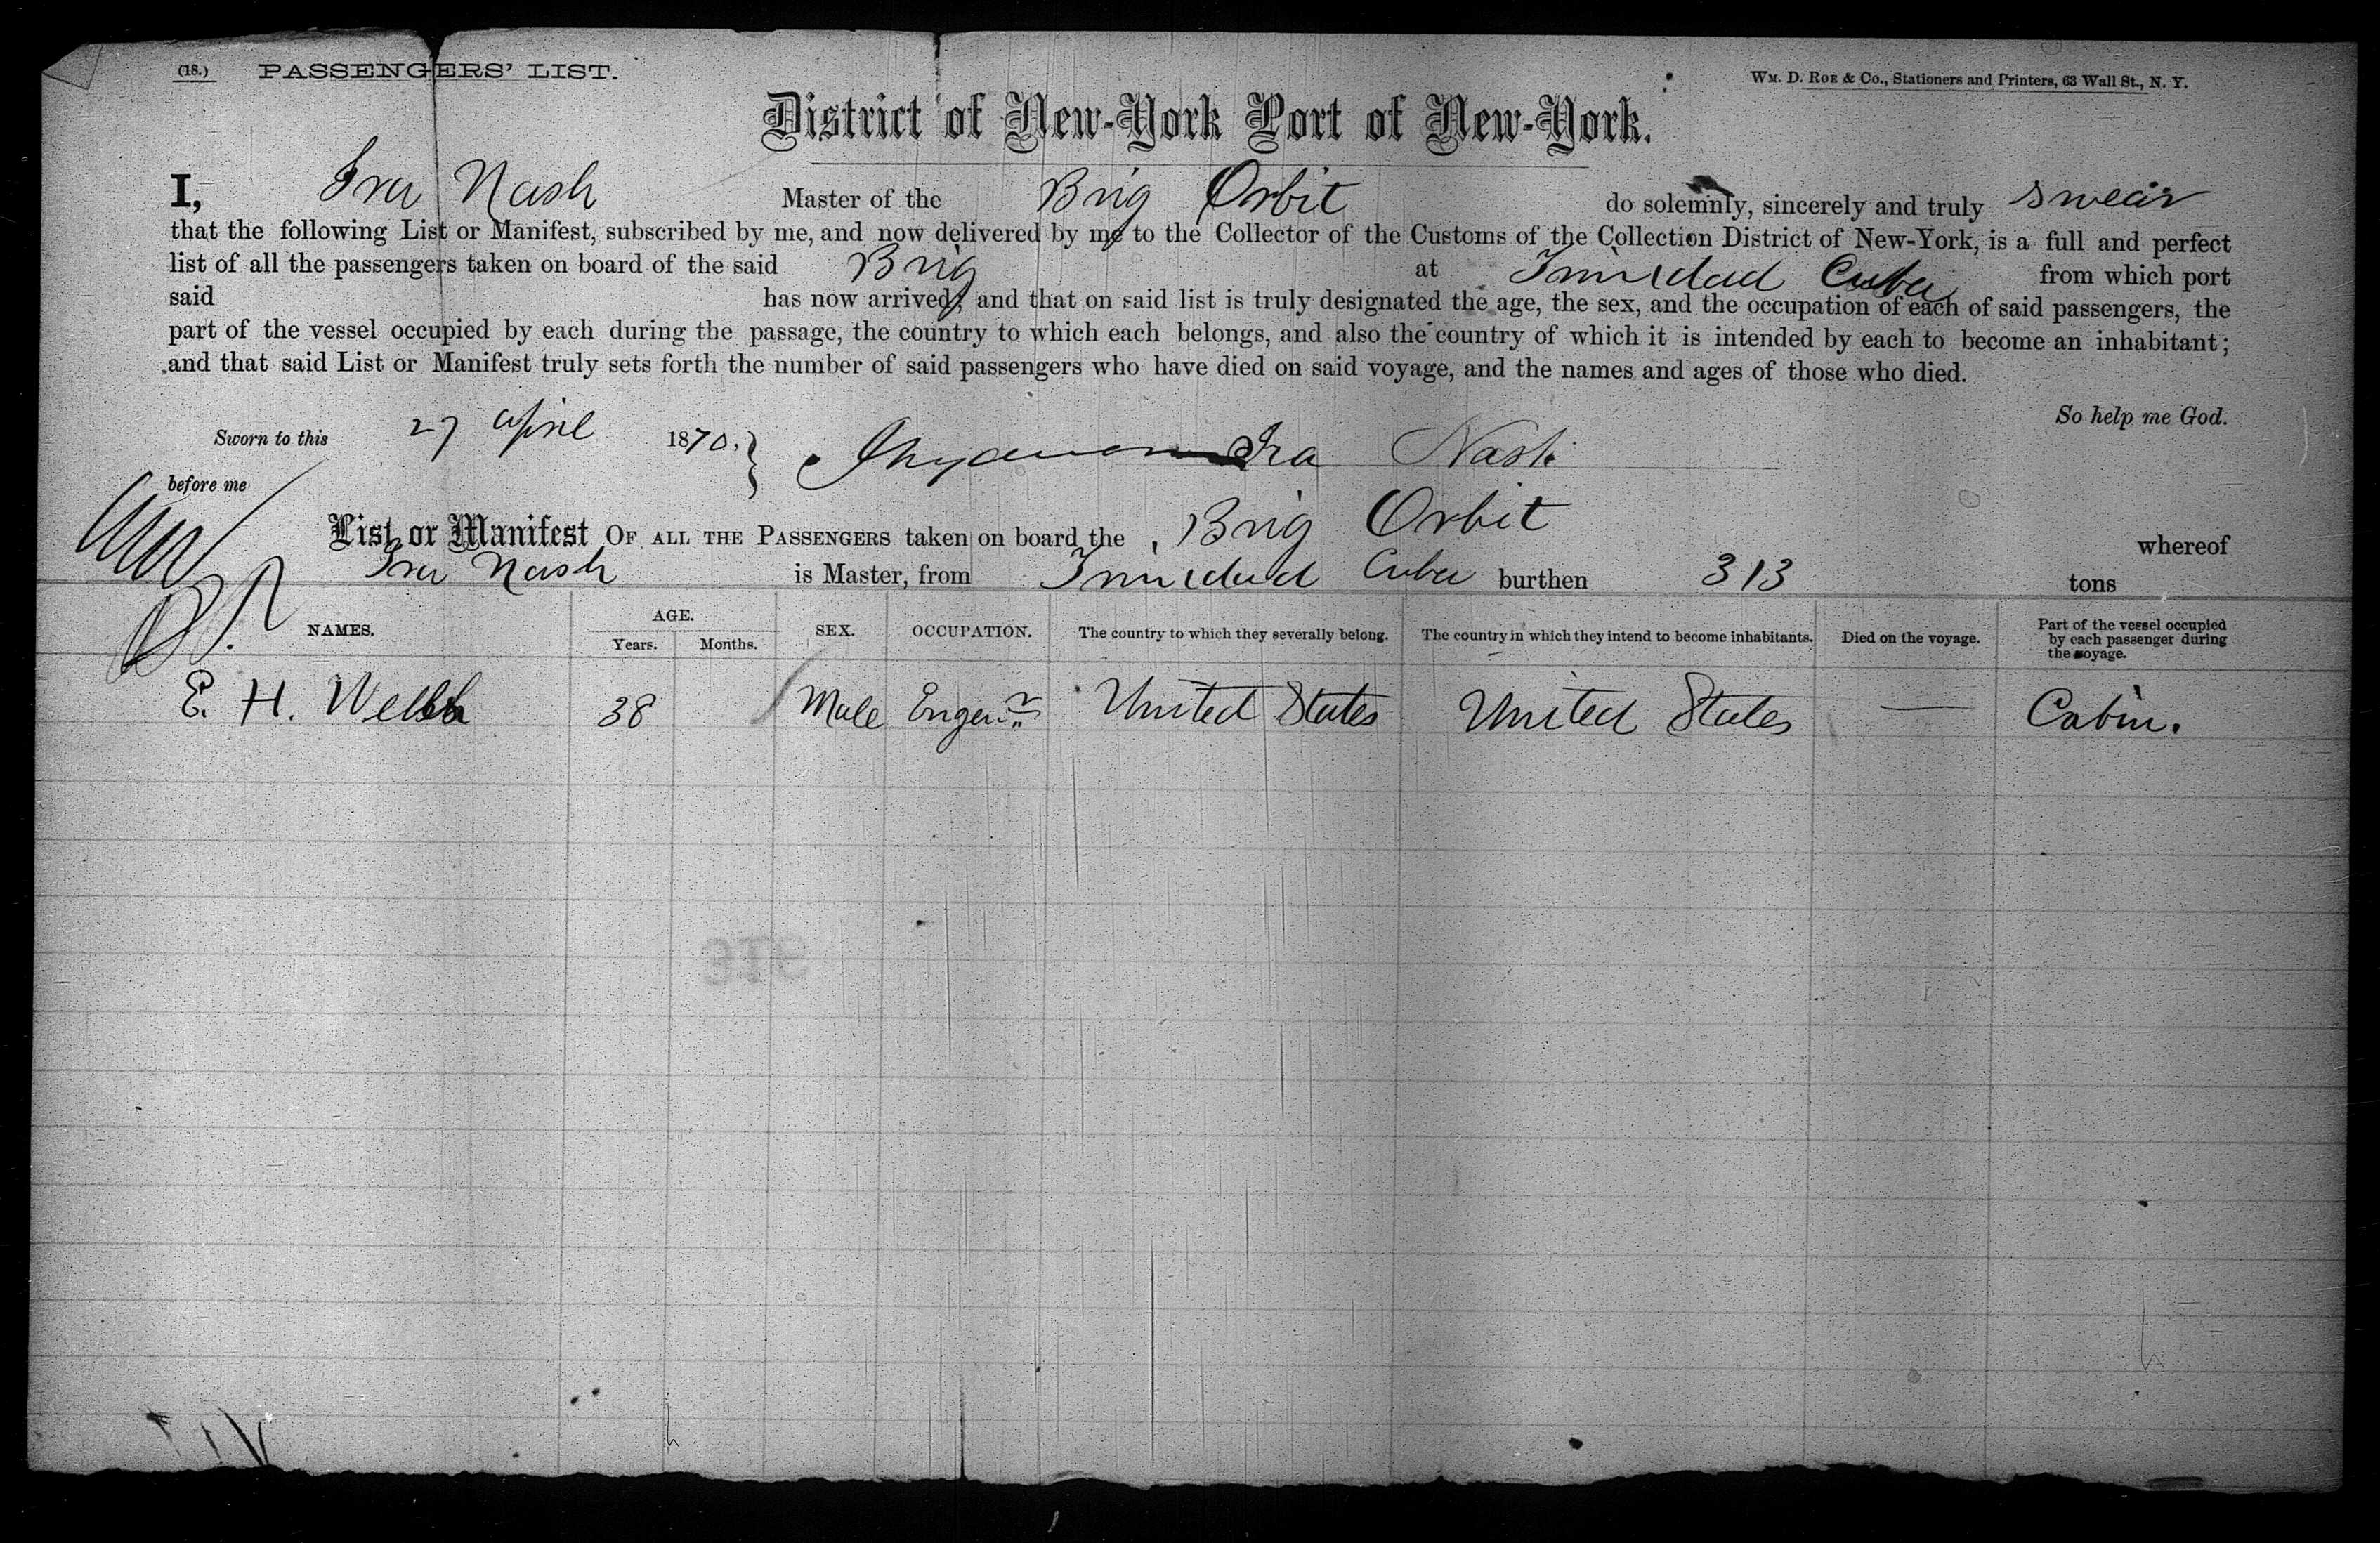 (18.) PASSENGERS' LIST.
WM. D. ROE & CO., Stationers and Printers, 63 Wall St., N. Y.
District of New-York Port of New-York.
I, Ira Nash Master of the Brig Orbit do solemnly, sincerely and truly swear
that the following List or Manifest, subscribed by me, and now delivered by me to the Collector of the Customs of the Collection District of New-York, is a full and perfect
list of all the passengers taken on board of the said Brig at Trinidad Cuba from which port
said has now arrived; and that on said list is truly designated the age, the sex, and the occupation of each of said passengers, the
part of the vessel occupied by each during the passage, the country to which each belongs, and also the country of which it is intended by each to become an inhabitant;
and that said List or Manifest truly sets forth the number of said passengers who have died on said voyage, and the names and ages of those who died.
So help me God.
Sworn to this 27 April 1870. Ira Nash
before me
List or Manifest OF ALL THE PASSENGERS taken on board the Brig Orbit whereof
Ira Nash is Master, from Trinidad Cuba burthen 313 tons
NAMES. AGE. Years. Months. SEX. OCCUPATION. The country to which they severally belong. The country in which they intend to become inhabitants. Died on the voyage. Part of the vessel occupied by each passenger during the voyage.
E. H. Welsh 38 Male United States United States — Cabin.